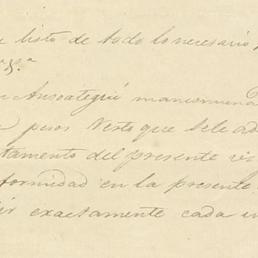 listo de todo lo necesario
5.ª
Ansoategui mancomuna
pesos resto que se le ad
tamento del presente
formidad en la presente
exactamente cada